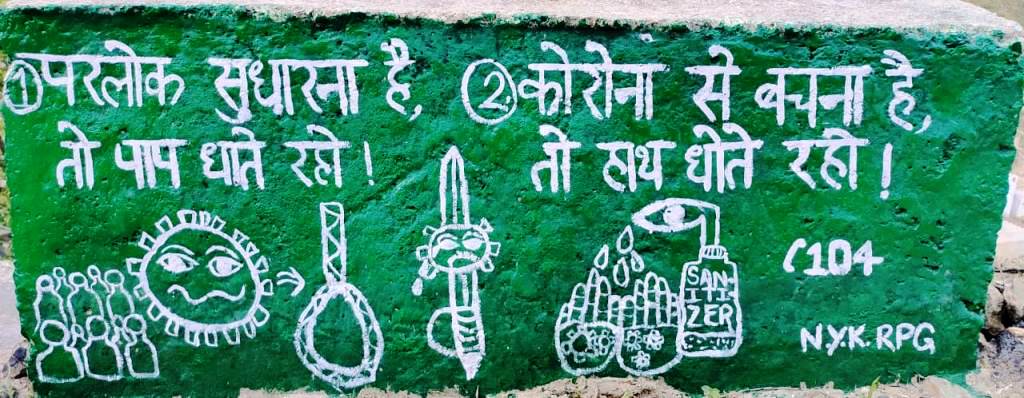 ① परलोक सुधारना है,
तो पाप धाते रहो !
② कोरोना से बचना है,
तो हाथ धोते रहो !
SAN-
ITI
ZER
104
N.Y.K. RPG